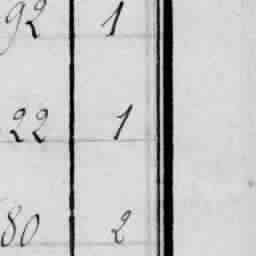 92 1
22 1
80 2